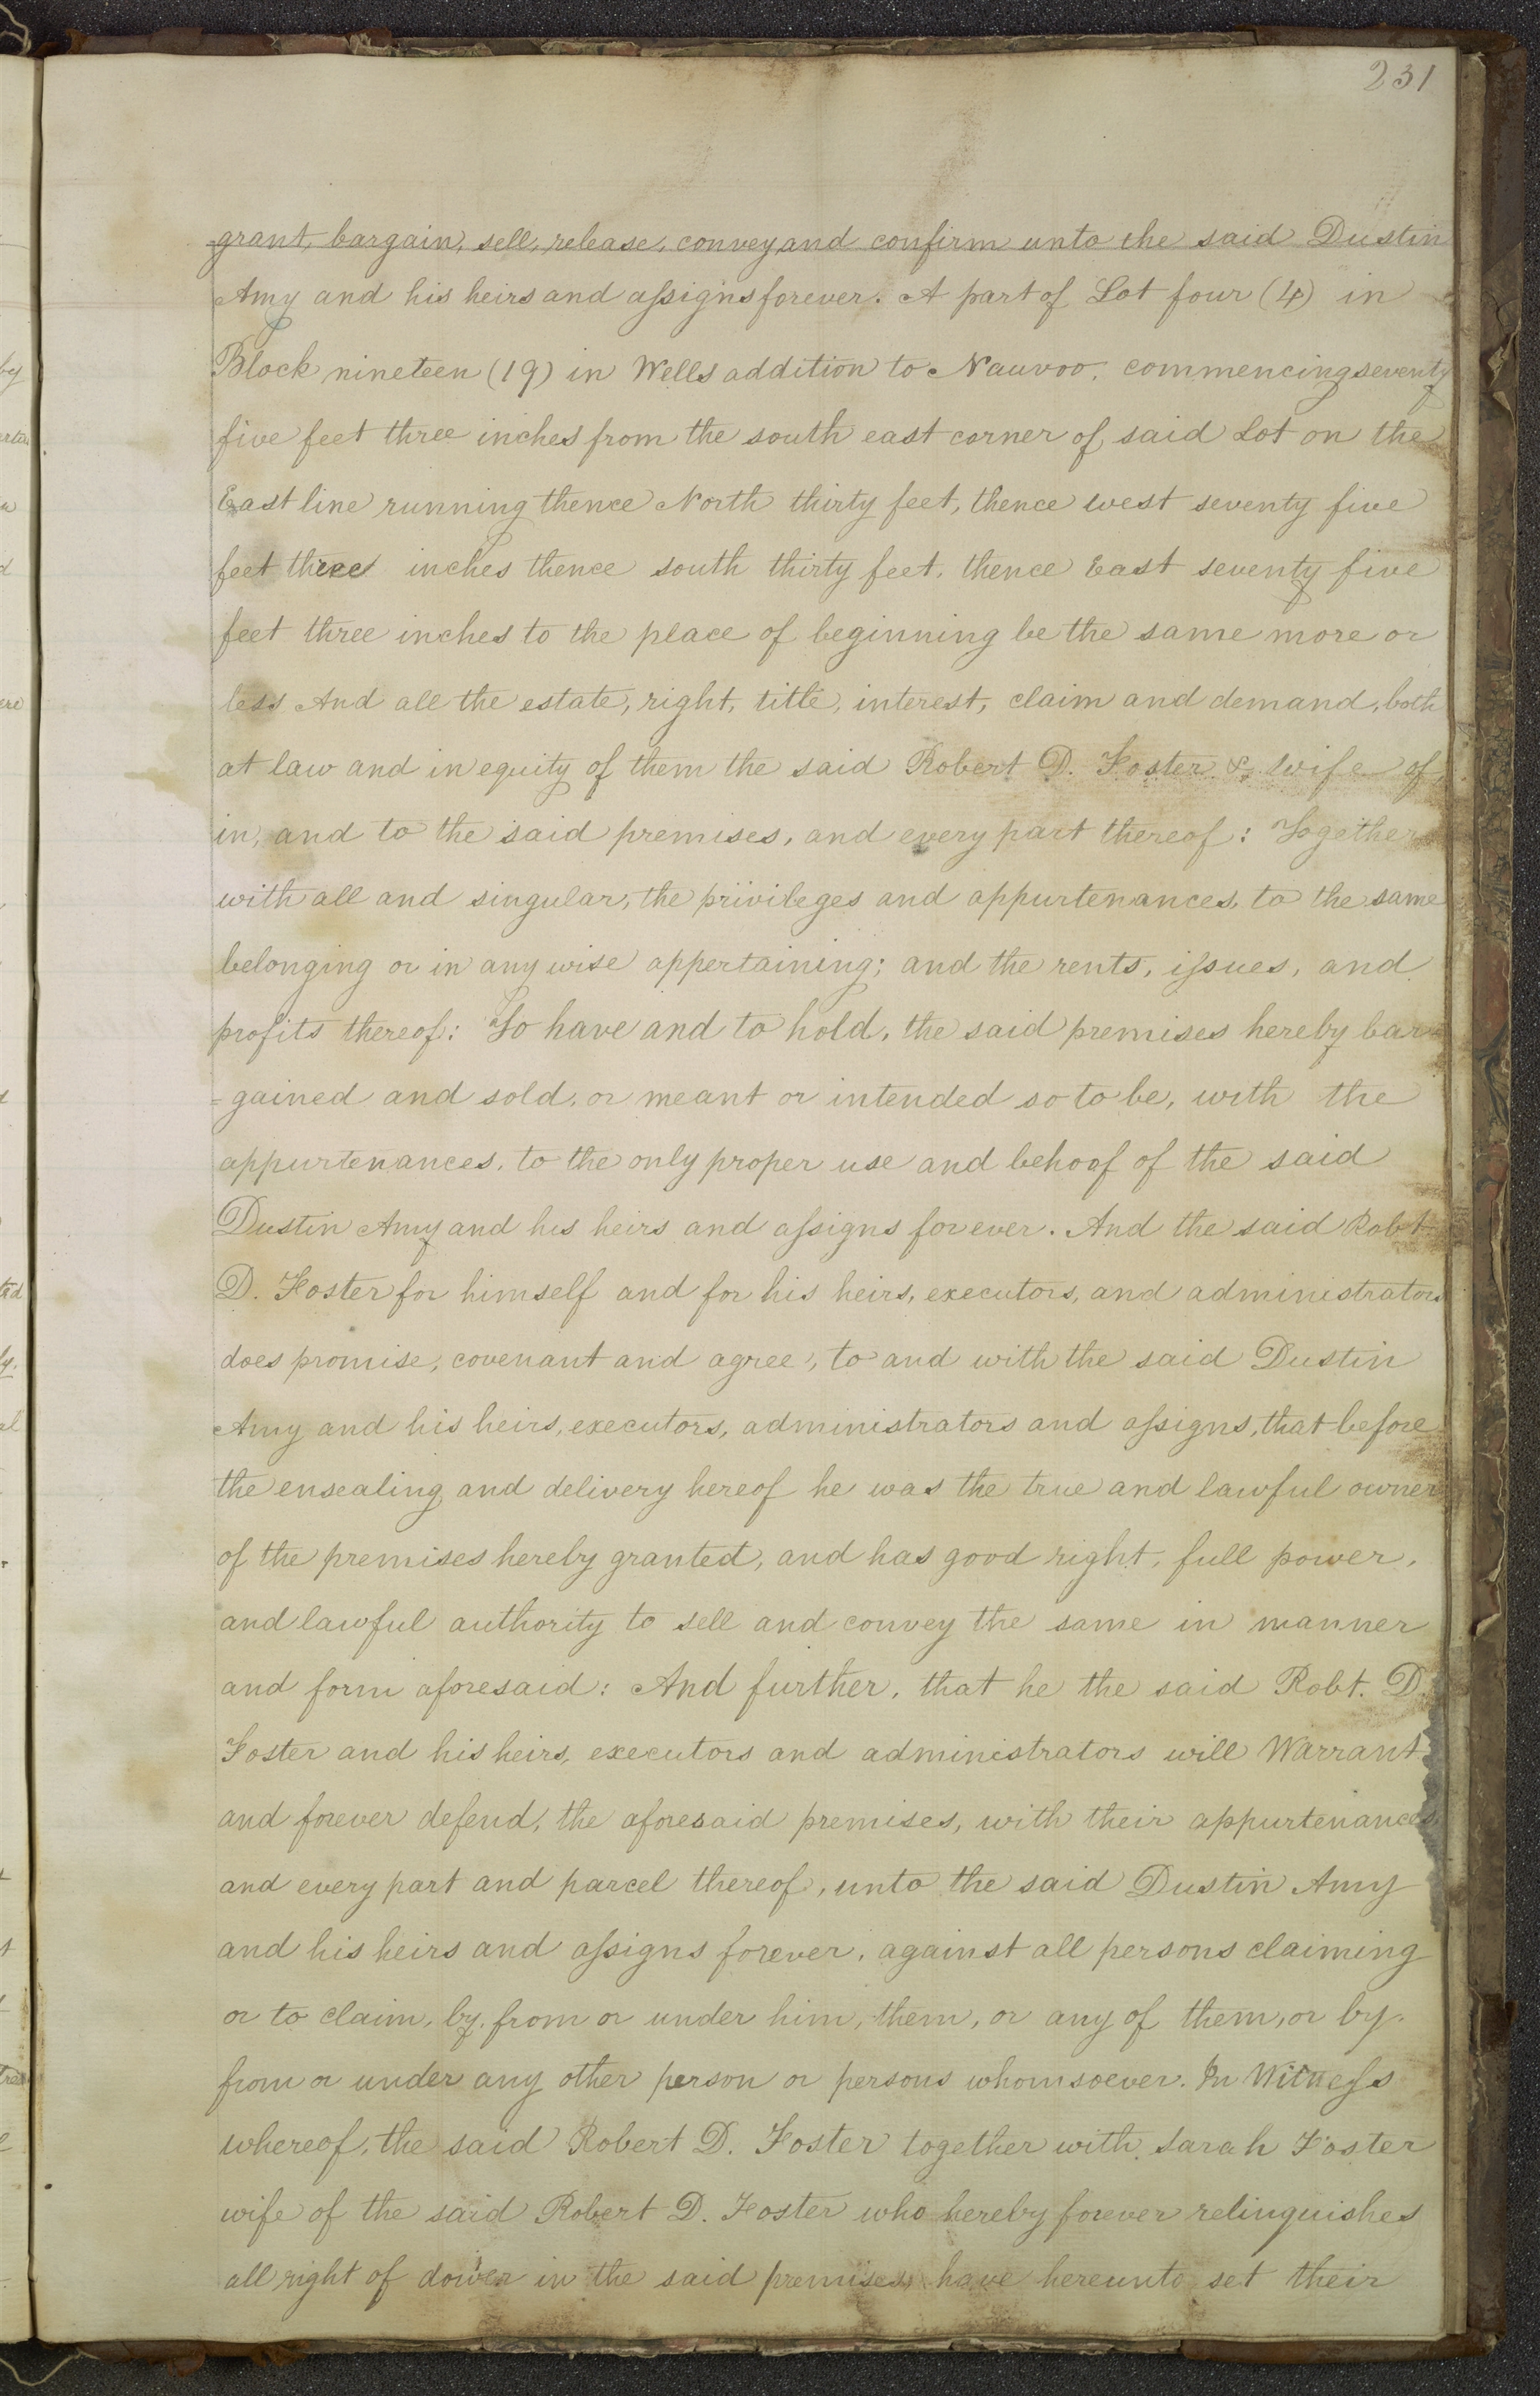 231
grant, bargain, sell, release, convey, and confirm unto the said Dustin
Amy and his heirs and assigns forever. A part of Lot four (4) in
Block nineteen (19) in Wells addition to Nauvoo. commencing seventy
five feet three inches from the south east corner of said Lot on the
East line running thence North thirty feet, thence west seventy five
feet three inches thence south thirty feet. thence East seventy five
feet three inches to the place of beginning be the same more or
less And all the estate, right, title, interest, claim and demand, both
at law and in equity of them the said Robert D. Foster & wife of,
in, and to the said premises, and every part thereof: Together
with all and singular, the privileges and appurtenances, to the same
belonging or in any wise appertaining; and the rents, issues, and
profits thereof: To have and to hold, the said premises hereby bar=
=gained and sold, or meant or intended so to be, with the
appurtenances, to the only proper use and behoof of the said
Dustin Amy and his heirs and assigns forever. And the said Robt
D. Foster for himself and for his heirs, executors, and administrators
does promise, covenant and agree, to and with the said Dustin
Amy and his heirs, executors, administrators and assigns, that before
the ensealing and delivery hereof he was the true and lawful owner
of the premises hereby granted, and has good right, full power,
and lawful authority to sell and convey the same in manner
and form aforesaid: And further, that he the said Robt. D.
Foster and his heirs, executors and administrators will Warrant
and forever defend, the aforesaid premises, with their appurtenances,
and every part and parcel thereof, unto the said Dustin Amy
and his heirs and assigns forever, against all persons claiming
or to claim, by, from or under him, them, or any of them, or by,
from or under any other person or persons whomsoever. In Witness
whereof, the said Robert D. Foster together with Sarah Foster
wife of the said Robert D. Foster who hereby forever relinquishes
all right of dower in the said premises, have hereunto set their